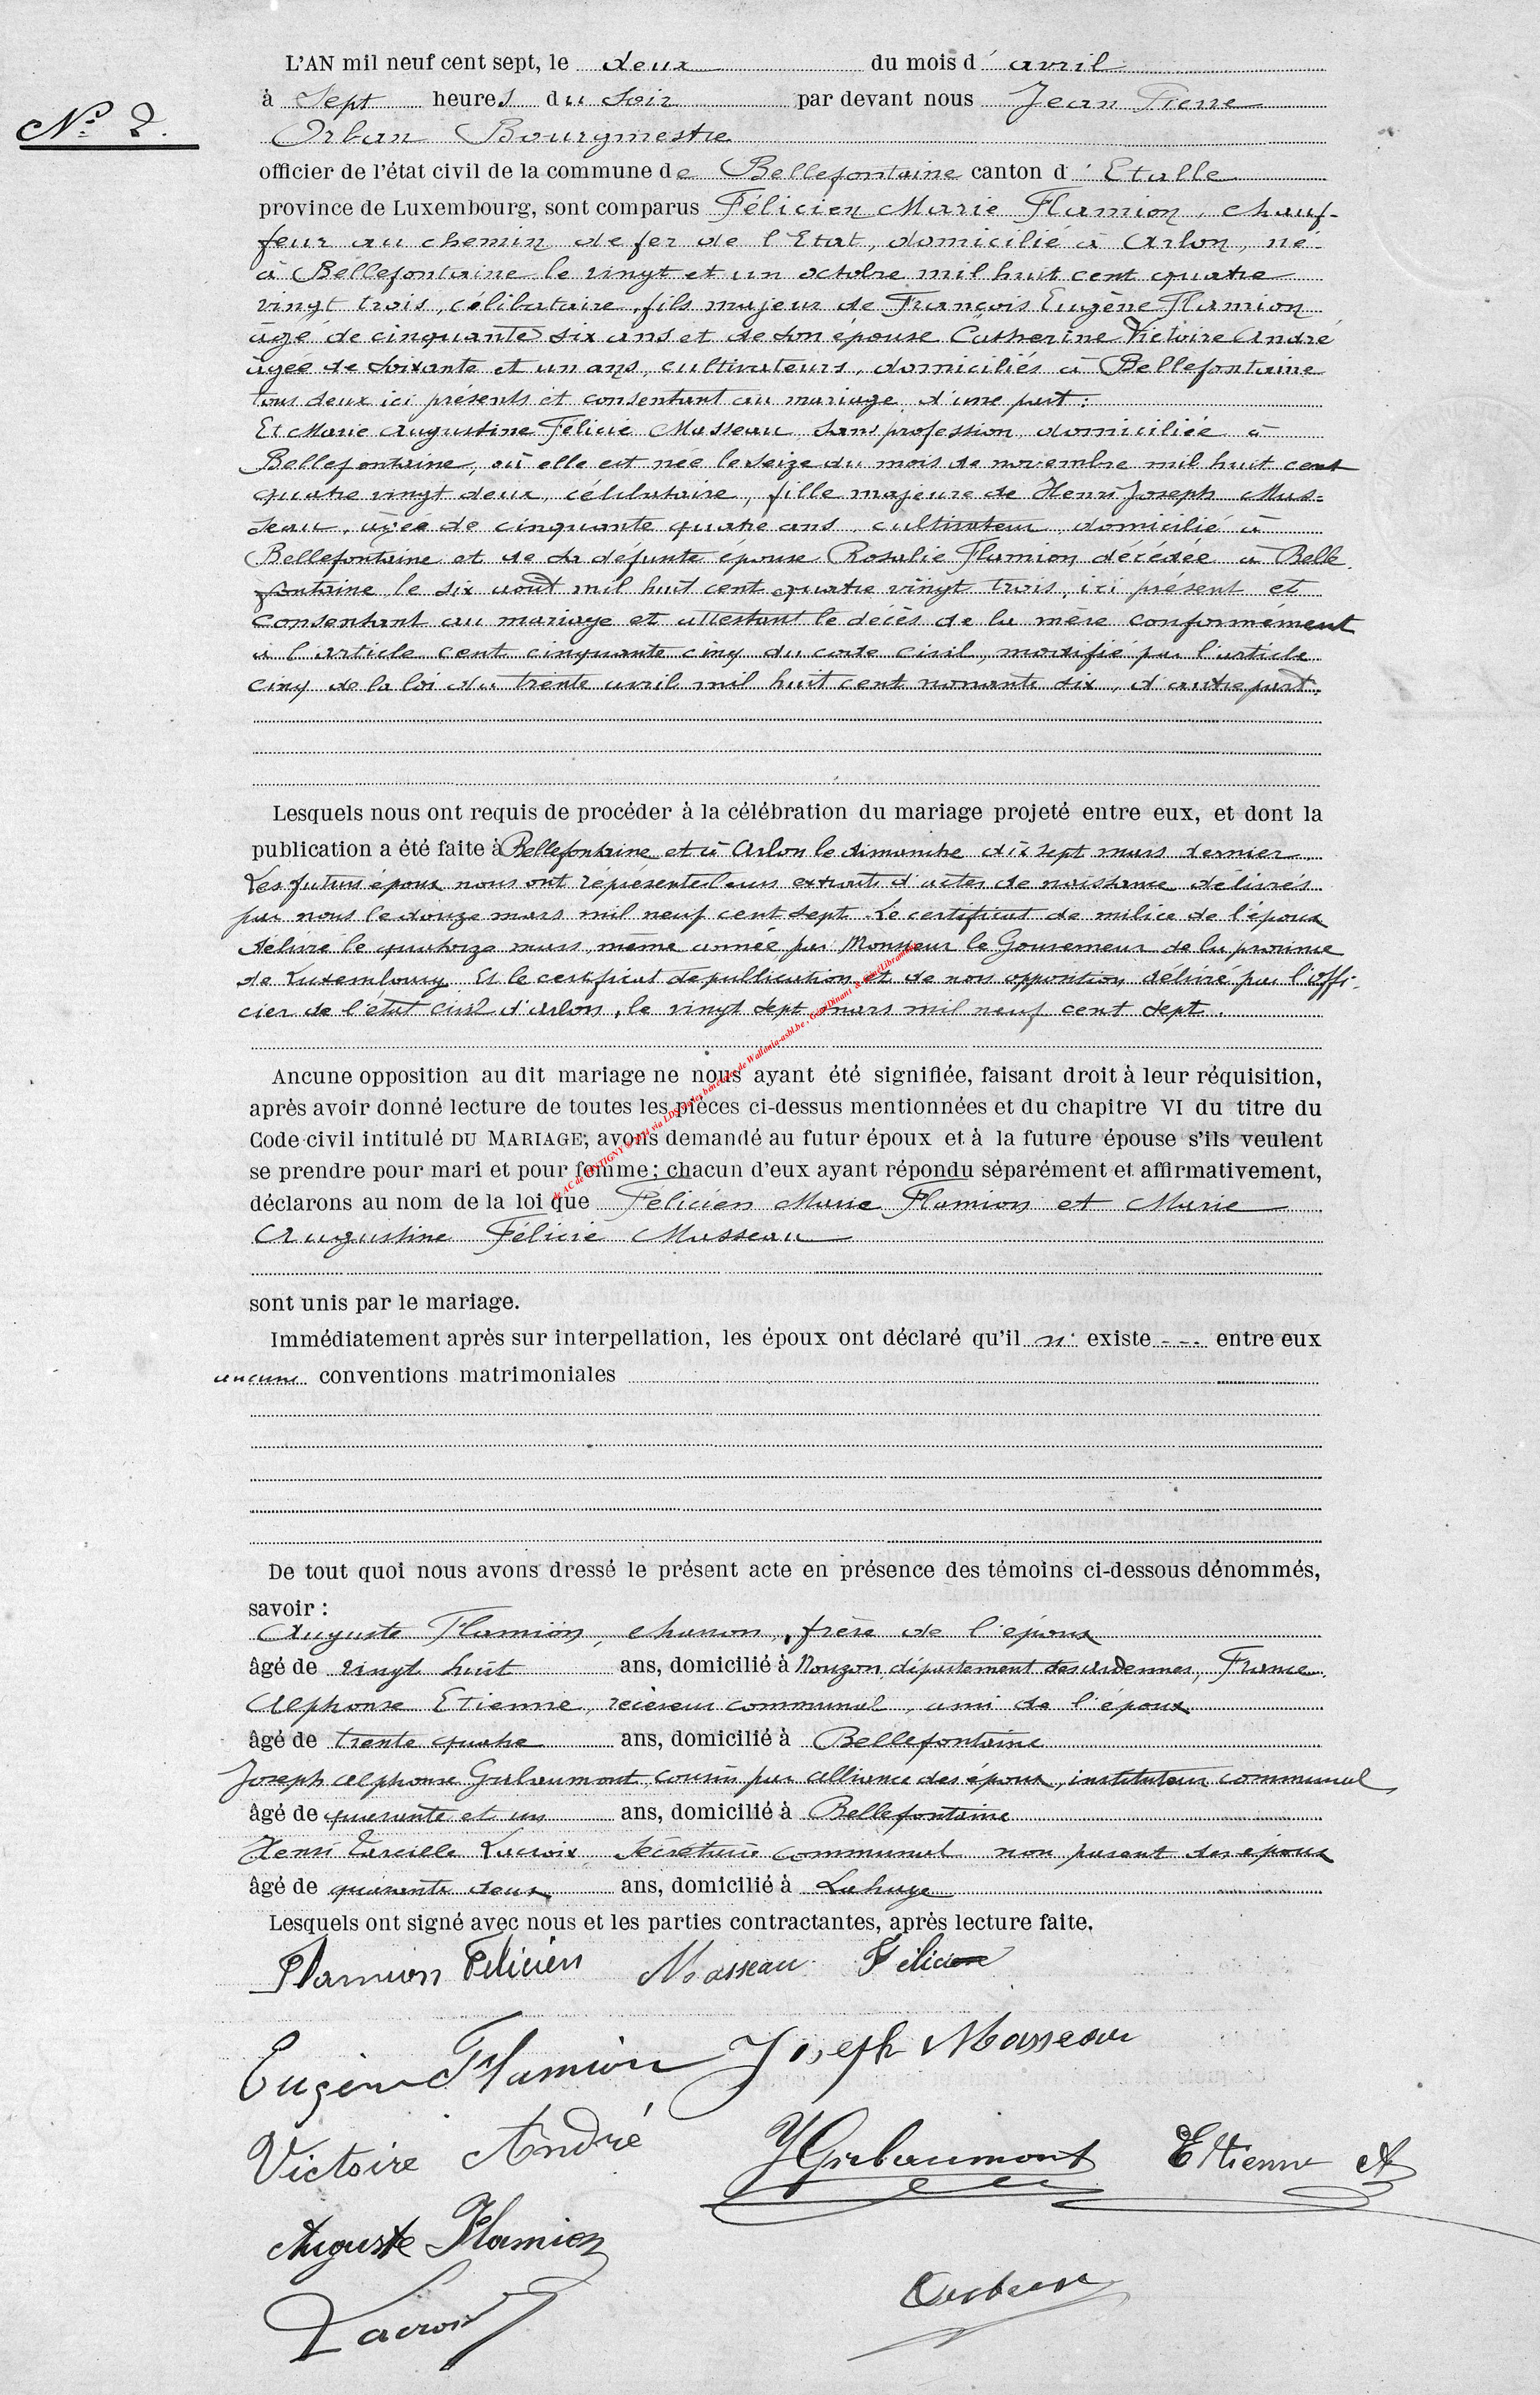 L'AN mil neuf cent sept, le deux du mois d' avril
à Sept heures du soir par devant nous Jean Pierre
N° 2.
Orban Bourgmestre
officier de l'état civil de la commune de Bellefontaine canton d' Etalle
province de Luxembourg, sont comparus Félicien Marie Flamion, chauf-
feur au chemin de fer de l'Etat, domicilié à Arlon, né
à Bellefontaine le vingt et un octobre mil huit cent quatre
vingt trois, célibataire, fils majeur de François Eugène Flamion
âgé de cinquante six ans et de son épouse Catherine Victoire André
âgée de soixante et un ans, cultivateurs, domiciliés à Bellefontaine
tous deux ici présents et consentant au mariage, d'une part:
Et Marie Augustine Félicie Masseau sans profession domiciliée à
Bellefontaine, où elle est née le seize du mois de novembre mil huit cent
quatre vingt deux, célibataire, fille majeure de Henri Joseph Mas=
seau, âgée de cinquante quatre ans, cultivateur, domicilié à
Bellefontaine et de sa défunte épouse Rosalie Flamion décédée à Belle
fontaine le six août mil huit cent quatre vingt trois, ici présent et
consentant au mariage et attestant le décès de la mère conformément
a l'article cent cinquante cinq du code civil, modifié par l'article
cinq de la loi du trente avril mil huit cent nonante six, d'autre part.
Lesquels nous ont requis de procéder à la célébration du mariage projeté entre eux, et dont la
publication a été faite à Bellefontaine et à Arlon le dimanche dix sept mars dernier.
Les futurs époux nous ont représenté leurs extraits d'actes de naissance délivrés
par nous le douze mars mil neuf cent sept. Le certificat de milice de l'époux
délivré le quatorze mars, même année par Monsieur le Gouverneur de la province
de Luxembourg. Et le certificat de publication et de non opposition délivré par l'offi-
cier de l'état civil d'Arlon, le vingt sept mars mil neuf cent sept.
Aucune opposition au dit mariage ne nous ayant été signifiée, faisant droit à leur réquisition,
après avoir donné lecture de toutes les pièces ci-dessus mentionnées et du chapitre VI du titre du
Code civil intitulé DU MARIAGE; avons demandé au futur époux et à la future épouse s'ils veulent
se prendre pour mari et pour femme; chacun d'eux ayant répondu séparément et affirmativement,
déclarons au nom de la loi que Félicien Marie Flamion et Marie
Augustine Félicie Masseau
sont unis par le mariage.
Immédiatement après sur interpellation, les époux ont déclaré qu'il n' existe --- entre eux
aucune conventions matrimoniales
De tout quoi nous avons dressé le présent acte en présence des témoins ci-dessous dénommés,
savoir :
Auguste Flamion, charron, frère de l'époux
âgé de vingt huit ans, domicilié à Nouzon, département des ardennes, France.
Alphonse Etienne, receveur communal, ami de l'époux
âgé de trente quatre ans, domicilié à Bellefontaine
Joseph Alphonse Girbaumont, cousin par alliance des époux, instituteur communal
âgé de quarante et un ans, domicilié à Bellefontaine
Henri Lacroix, Secrétaire communal non parent des époux
âgé de quarante deux ans, domicilié à Lahage
Lesquels ont signé avec nous et les parties contractantes, après lecture faite.
Flamion Félicien Masseau Félicie
Eugène Flamion Joseph Masseau
Victoire André JGirbaumont Etienne A
Auguste Flamion
Lacroix Orban